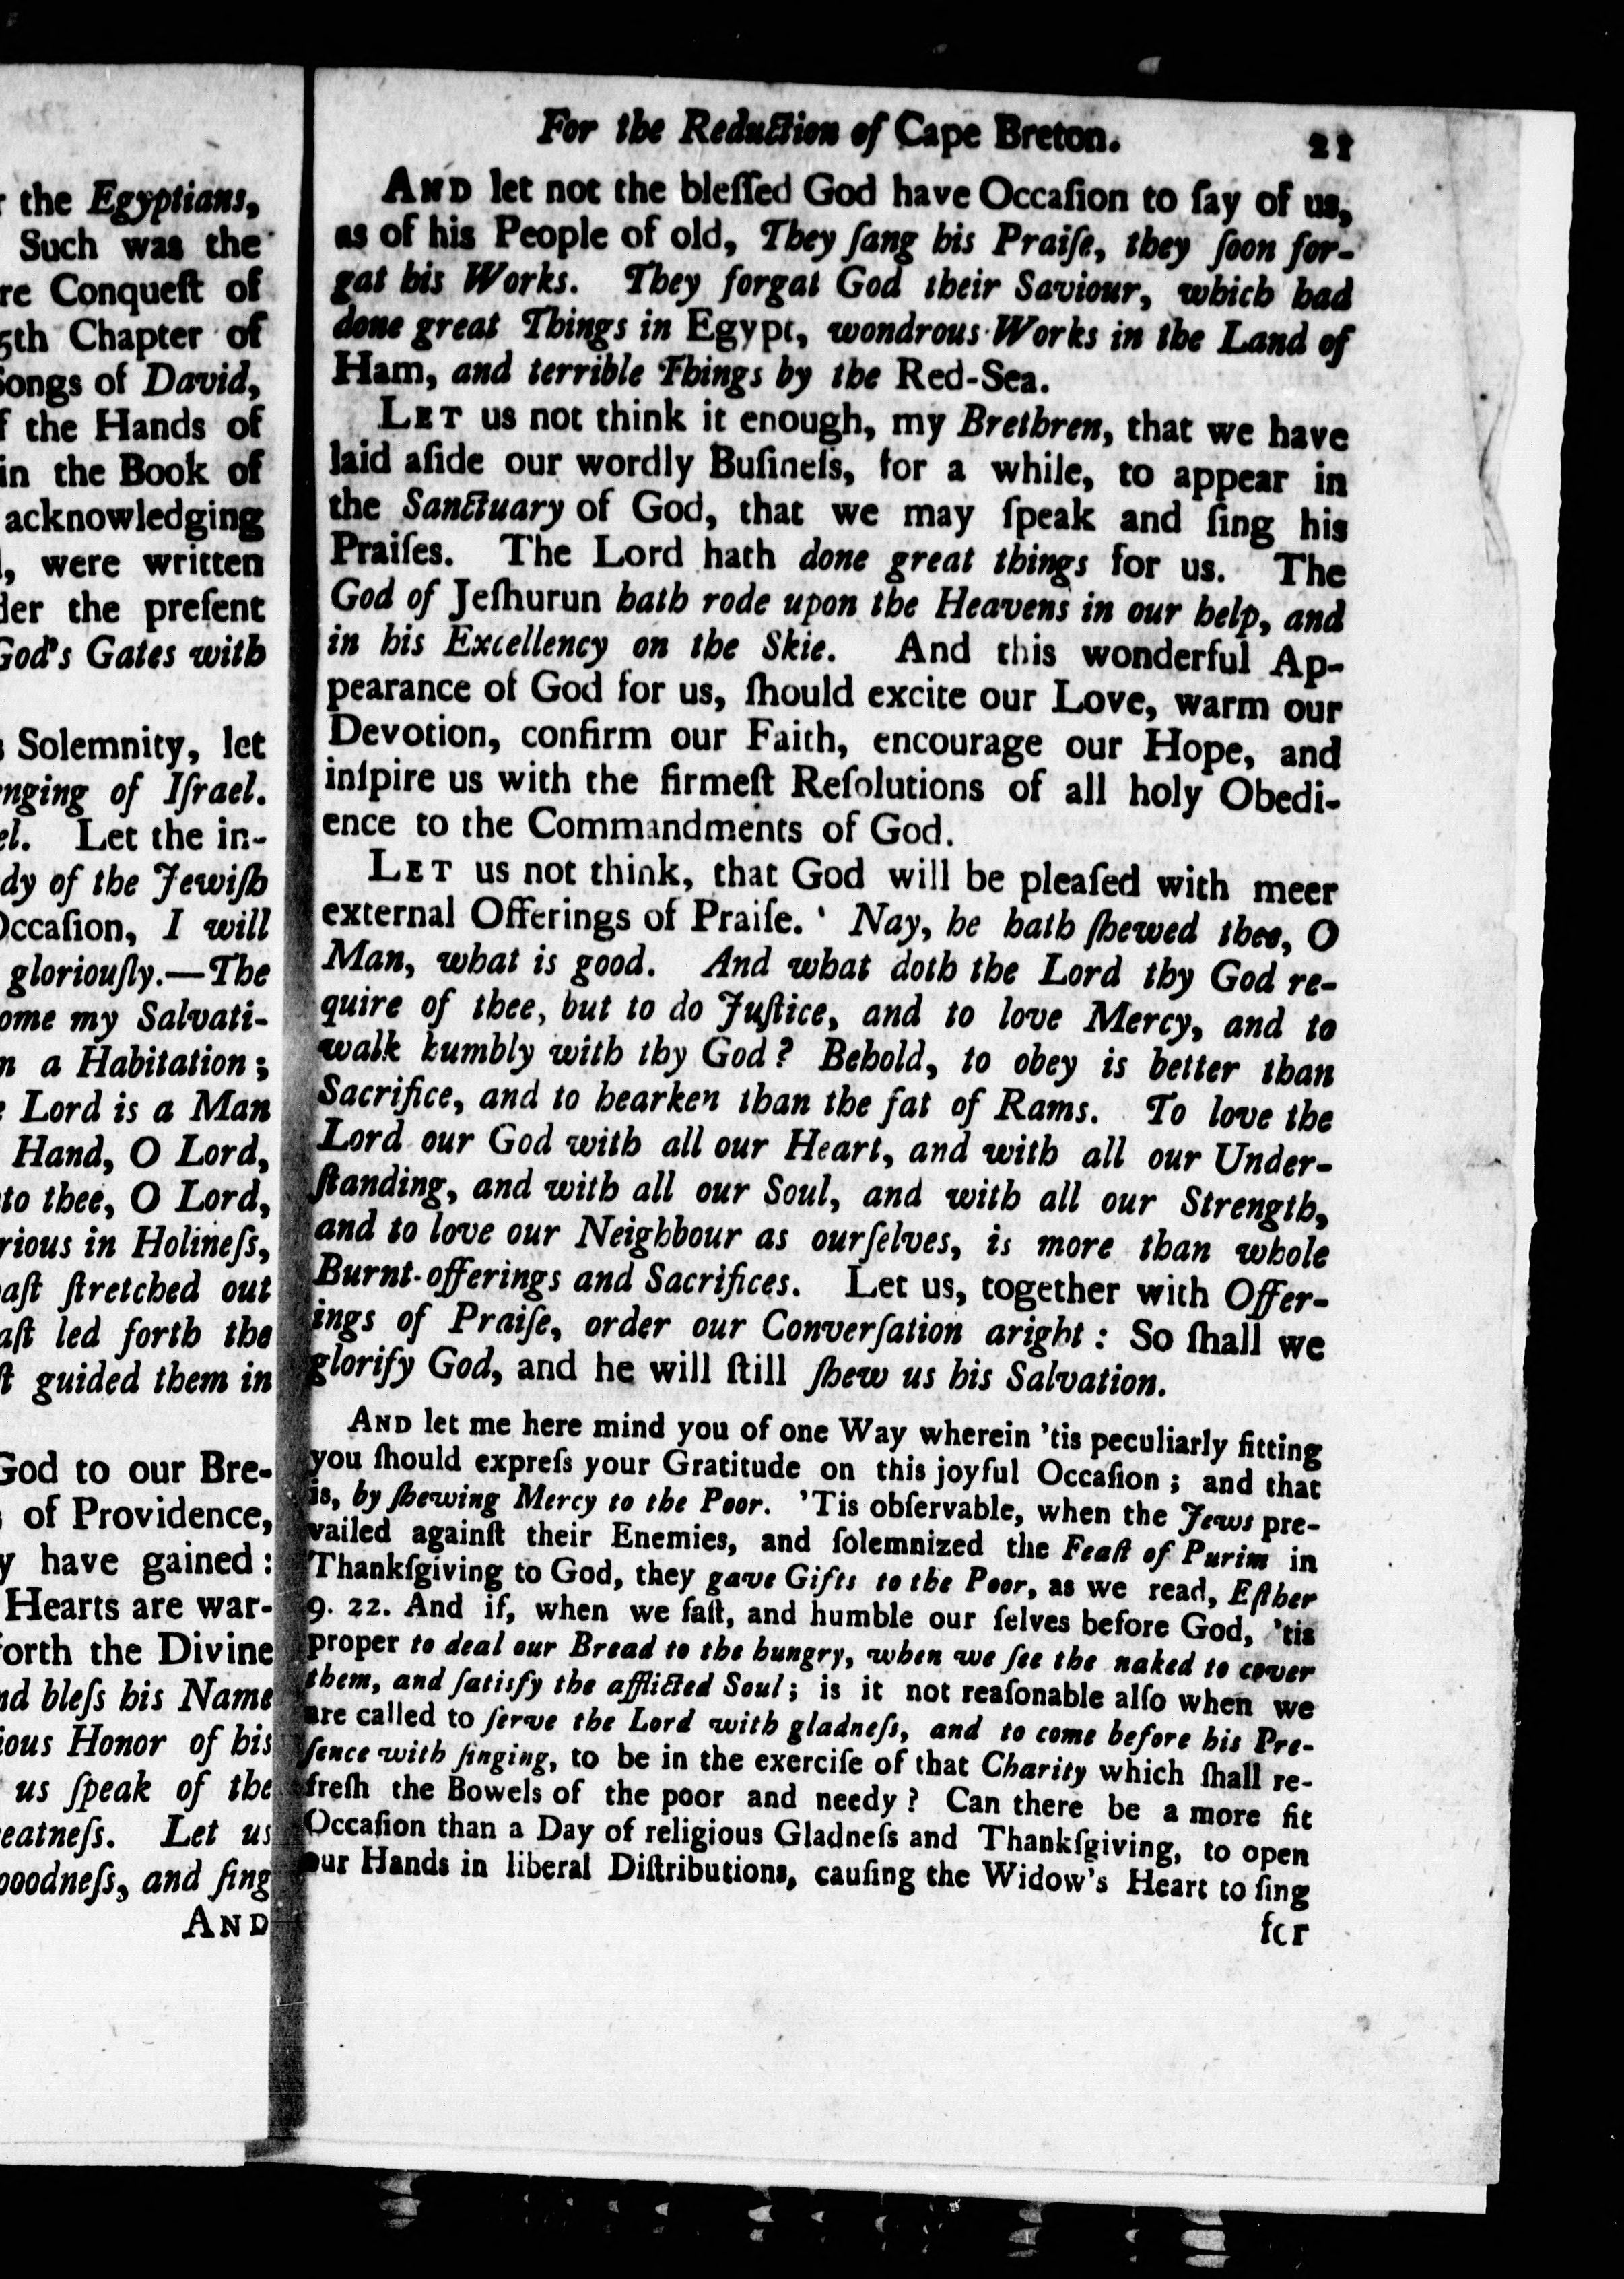 the Egyptians,
Such was the
re Conqueſt of
5th Chapter of
Songs of David,
f the Hands of
in the Book of
acknowledging
, were written
der the preſent
God's Gates with
Solemnity, let
nging of Iſrael.
el. Let the in-
dy of the Jewiſh
Occaſion, I will
gloriouſly.—The
ome my Salvati-
n a Habitation;
Lord is a Man
Hand, O Lord,
to thee, O Lord,
rious in Holineſs,
aſt ſtretched out
aſt led forth the
ſt guided them in
God to our Bre-
of Providence,
y have gained:
Hearts are war-
forth the Divine
nd bleſs his Name
ious Honor of his
us ſpeak of the
eatneſs. Let us
oodneſs, and ſing
AND
For the Reduction of Cape Breton. 21
AND let not the bleſſed God have Occaſion to ſay of us,
as of his People of old, They ſang his Praiſe, they ſoon for-
gat his Works. They forgat God their Saviour, which had
done great Things in Egypt, wondrous Works in the Land of
Ham, and terrible Things by the Red-Sea.
LET us not think it enough, my Brethren, that we have
laid aſide our wordly Buſineſs, for a while, to appear in
the Sanctuary of God, that we may ſpeak and ſing his
Praiſes. The Lord hath done great things for us. The
God of Jeſhurun hath rode upon the Heavens in our help, and
in his Excellency on the Skie. And this wonderful Ap-
pearance of God for us, ſhould excite our Love, warm our
Devotion, confirm our Faith, encourage our Hope, and
inſpire us with the firmeſt Reſolutions of all holy Obedi-
ence to the Commandments of God.
LET us not think, that God will be pleaſed with meer
external Offerings of Praiſe. ' Nay, he hath ſhewed thee, O
Man, what is good. And what doth the Lord thy God re-
quire of thee, but to do Juſtice, and to love Mercy, and to
walk humbly with thy God? Behold, to obey is better than
Sacrifice, and to hearken than the fat of Rams. To love the
Lord our God with all our Heart, and with all our Under-
ſtanding, and with all our Soul, and with all our Strength,
and to love our Neighbour as ourſelves, is more than whole
Burnt-offerings and Sacrifices. Let us, together with Offer-
ings of Praiſe, order our Converſation aright: So ſhall we
glorify God, and he will ſtill ſhew us his Salvation.
AND let me here mind you of one Way wherein 'tis peculiarly fitting
you ſhould expreſs your Gratitude on this joyful Occaſion; and that
is, by ſhewing Mercy to the Poor. 'Tis obſervable, when the Jews pre-
vailed againſt their Enemies, and ſolemnized the Feaſt of Purim in
Thankſgiving to God, they gave Gifts to the Poor, as we read, Eſther
9. 22. And if, when we faſt, and humble our ſelves before God, 'tis
proper to deal our Bread to the hungry, when we ſee the naked to cover
them, and ſatisfy the afflicted Soul; is it not reaſonable alſo when we
are called to ſerve the Lord with gladneſs, and to come before his Pre-
ſence with ſinging, to be in the exerciſe of that Charity which ſhall re-
freſh the Bowels of the poor and needy? Can there be a more fit
Occaſion than a Day of religious Gladneſs and Thankſgiving, to open
our Hands in liberal Diſtributions, cauſing the Widow's Heart to ſing
for